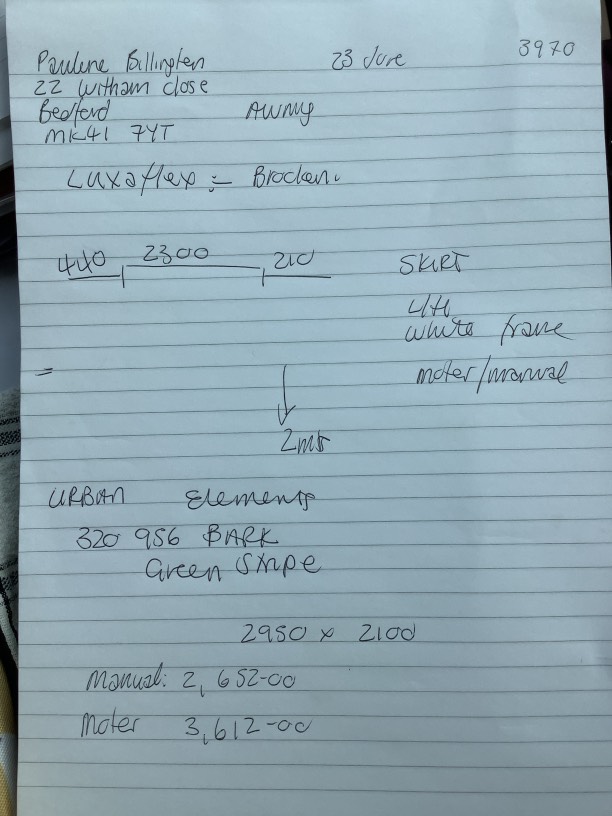 3970
Pauline Billington 23 June
22 Witham close
Bedford Awning
MK41 7YT
Luxaflex :- Broken.
440 2300 210 SKIRT
L/H
white frame
=
moter/manual
2mts
URBAN Elements
320 956 BARK
Green Stripe
2950 x 2100
Manual: 2,652-00
Moter 3,612-00